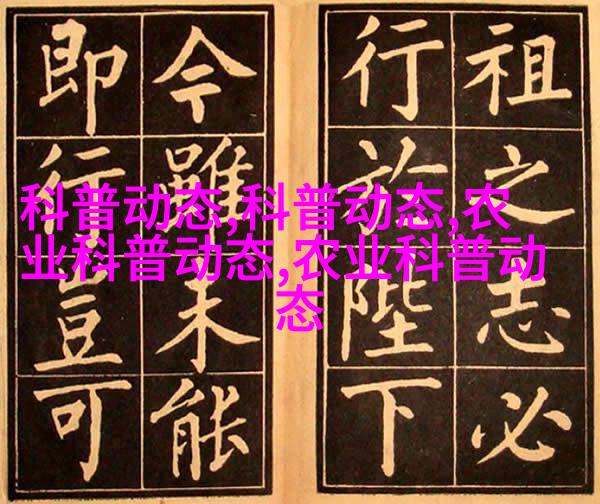 祖之志必
行於陛下
今雖未能
即行豈可
科普动态,科普动态,农
业科普动态,农业科普动
态